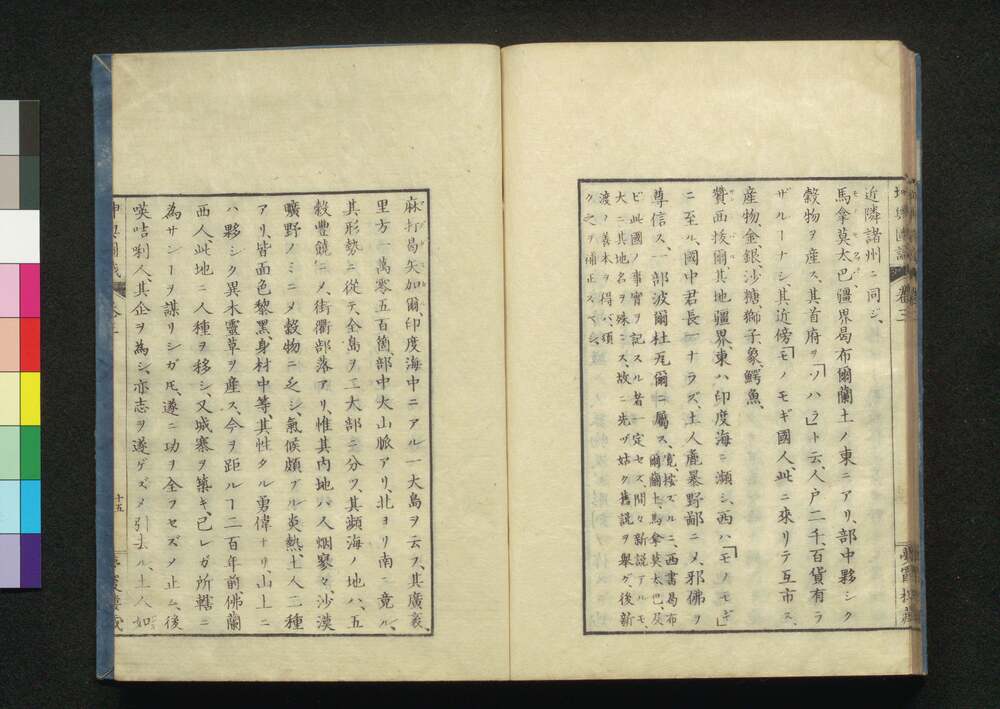 坤輿圖識 卷三
近隣諸州ニ同ジ、
馬拿莫太巴疆界曷布爾蘭土ノ東ニアリ、部中夥シク
穀物ヲ産ス、其首府ヲ「ソハラ」ト云、人戸二千、百貨有ラ
ザルーナシ、其近傍「モノモギ」國人、此ニ來リテ互市ス、
産物、金、銀、沙糖、獅子、象、鰐魚、
贊西拔爾、其地疆界、東ハ印度海ニ瀕シ、西ハ「モノモギ」
ニ至ル、國中君長一ナラズ、土人麁暴野鄙ニメ、邪佛ヲ
尊信ス、一部波爾杜瓦爾ニ屬ス、寛、按ズルニ、西書曷布
爾蘭土、馬拿莫太巴、及
ビ此國ノ事實ヲ記スル者一定セズ、間々新説アルモ、
大ニ其地名ヲ殊ニス、故ニ先ヅ姑ク舊説ヲ擧グ、後新
渡ノ善本ヲ得バ、須
ク之ヲ補正スベシ、
麻打曷矢加爾、印度海中ニアル一大島ヲ云フ、其廣袤、
里方一萬零五百箇、部中大山脈アリ、北ヨリ南ニ竟ル、
其形勢ニ從テ、全島ヲ二大部ニ分ツ、其瀕海ノ地ハ、五
穀豐饒ニメ、街衢部落アリ、惟其内地ハ人烟寥々、沙漠
曠野ノミニメ穀物ニ乏シ、氣候頗ブル炎熱、土人二種
アリ、皆面色黎黑、身材中等、其性タル勇偉ナリ、山上ニ
ハ夥シク異木靈草ヲ産ス、今ヲ距ルー二百年前、佛蘭
西人、此地ニ人種ヲ移シ、又城寨ヲ築キ、已レガ所轄ニ
為サンーヲ謀リシガ㕥、遂ニ功ヲ全フセズメ止ム、後
嘆咭唎人其企ヲ為シ、亦志ヲ遂ゲズメ引去ル、土人如
十五